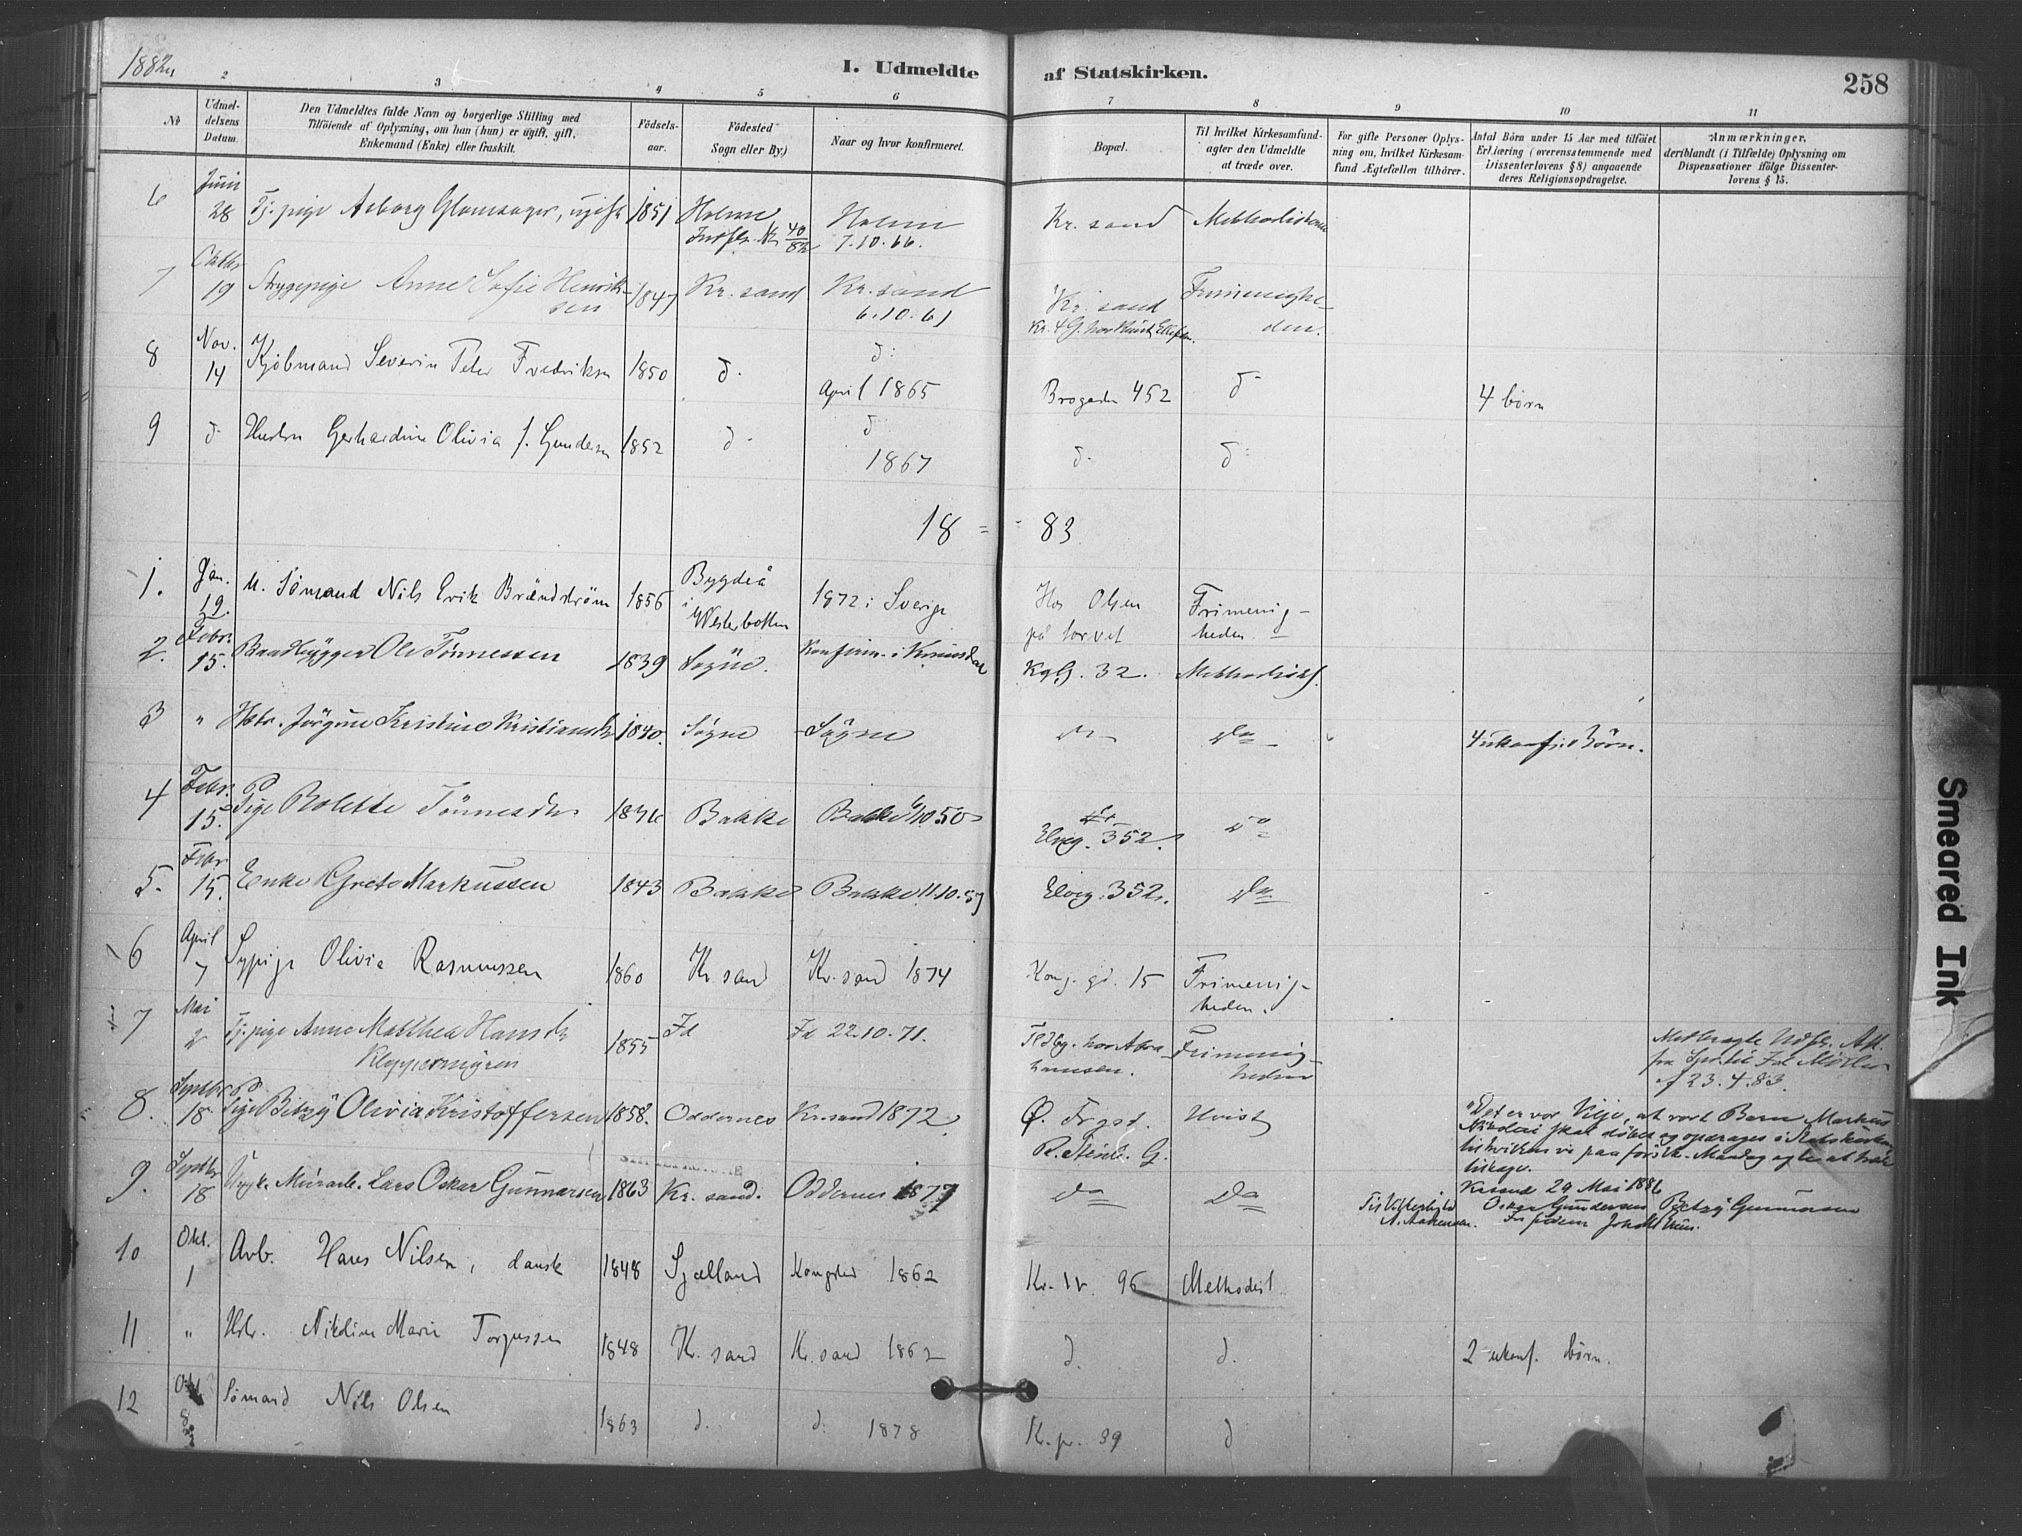 1882
I. Udmeldte af Statskirken.
258
2 3 4 5 6 7 8 9 10 11
No
Udmeldelsens Datum.
Den Udmeldtes fulde Navn og borgerlige Stilling med
Tilföiende af Oplysning, om han (hun) er ugift, gift,
Enkemand (Enke) eller fraskilt.
Födsels-
aar.
Födested
Sogn eller By.)
Naar og hvor konfirmeret.
Bopæl.
Til hvilket Kirkesamfund-
agter den Udmeldte
at træde over.
For gifte Personer Oplys-
ning om, hvilket Kirkesam-
fund Ægtefællen tilhörer.
Antal Börn under 15 Aar med tilföiet
Erklæring (overensstemmende med
Dissenterlovens § 8) angaaende
deres Religionsopdragelse.
Anmærkninger,
deriblandt (i Tilfælde) Oplysning om
Dispensationer ifölge Dissenter-
lovens § 15.
6 Juni 28 Tj. pige Asborg Glomsager, ugift 1851 Holme 40/82 Holme 7.10.66. Kr. sand Methodisterne
7 Oktbr 19 Strygepige Anne Sofie Henrik-
sen 1847 Kr. sand Kr. sand 6.10.61 Kr. sand Frimenighe-
den.
8 Nov. 14 Kjøbmand Severin Peter Fredriksen 1850 d. d: April 1865 Brogaden 452 d- 4 børn
9 d. Hustru Gerhardine Olivia f. Gundersen 1852 d. d 1867 d. d:
18 = 83
1. Jan. 19. U. Sømand Nils Erik Brändström 1856 Bygdeå i Westerbotten 1872 i Sverige Hos Olsen
på torvet Frimenig-
heden.
2. Febr. 15. Baadbygger Ole Tønnessen 1839 Søgne. Konfirm. i Kvinesdal Kg G. 32. Methodist.
3 " Hstr. Jörgine Kristine Kristiansdr 1840. Søgne Søgne Do 4 ukonf. Børn.
4 Febr. 15. Pige Bolette Tønnesdtr 1836 Bakke Bakke 6/10 50 Elveg. 352. Do
5. Febr 15. Enke Grete Markussen 1843 Bakke Bakke 11.10.57 Elveg. 352. Do
6 April 7 Sypige Olivia Rasmussen 1860 Kr sand Kr. sand 1874 Kong. gd. 15 Frimenig-
heden.
7 Mai 2 Tj. pige Anne Mathea Hansdtr
Kleppermyren 1855 Id Id 22.10.71. hos Abra-
hamsen. Frimenig-
heden Medbragte Udfl. Att.
fra
af 23.4.83.
8. Septbr 18 Pige Betzy Olivia Kristoffersen 1858. Oddernes Kr. sand 1872. Ø.
R. Stenb. G. "Det er vor Vilje, at vort Barn Markus
Nikolai skal døbes og opdrages i Statskirken
9. Septbr 18 Lars Oskar Gunnarsen 1863 Kr. sand. Oddernes 1877 Do Do Kr.sand 29 Mai 1886
Til Vitterlighed Oskar Gundersen Betzy Gunnarsen
10 Okt. 1 Arb. Hans Nilsen, dansk 1848 Sjælland Kongsted 1862 96 Methodist
11 " Hstr. Nikoline Marie Torjussen 1848 Kr. sand Kr. sand 1862 d. d. 2 ukonf. børn.
12 Okt 8 Sømand Nils Olsen 1863 d. d. 1878 K. pr. 39 d
Smeared Ink